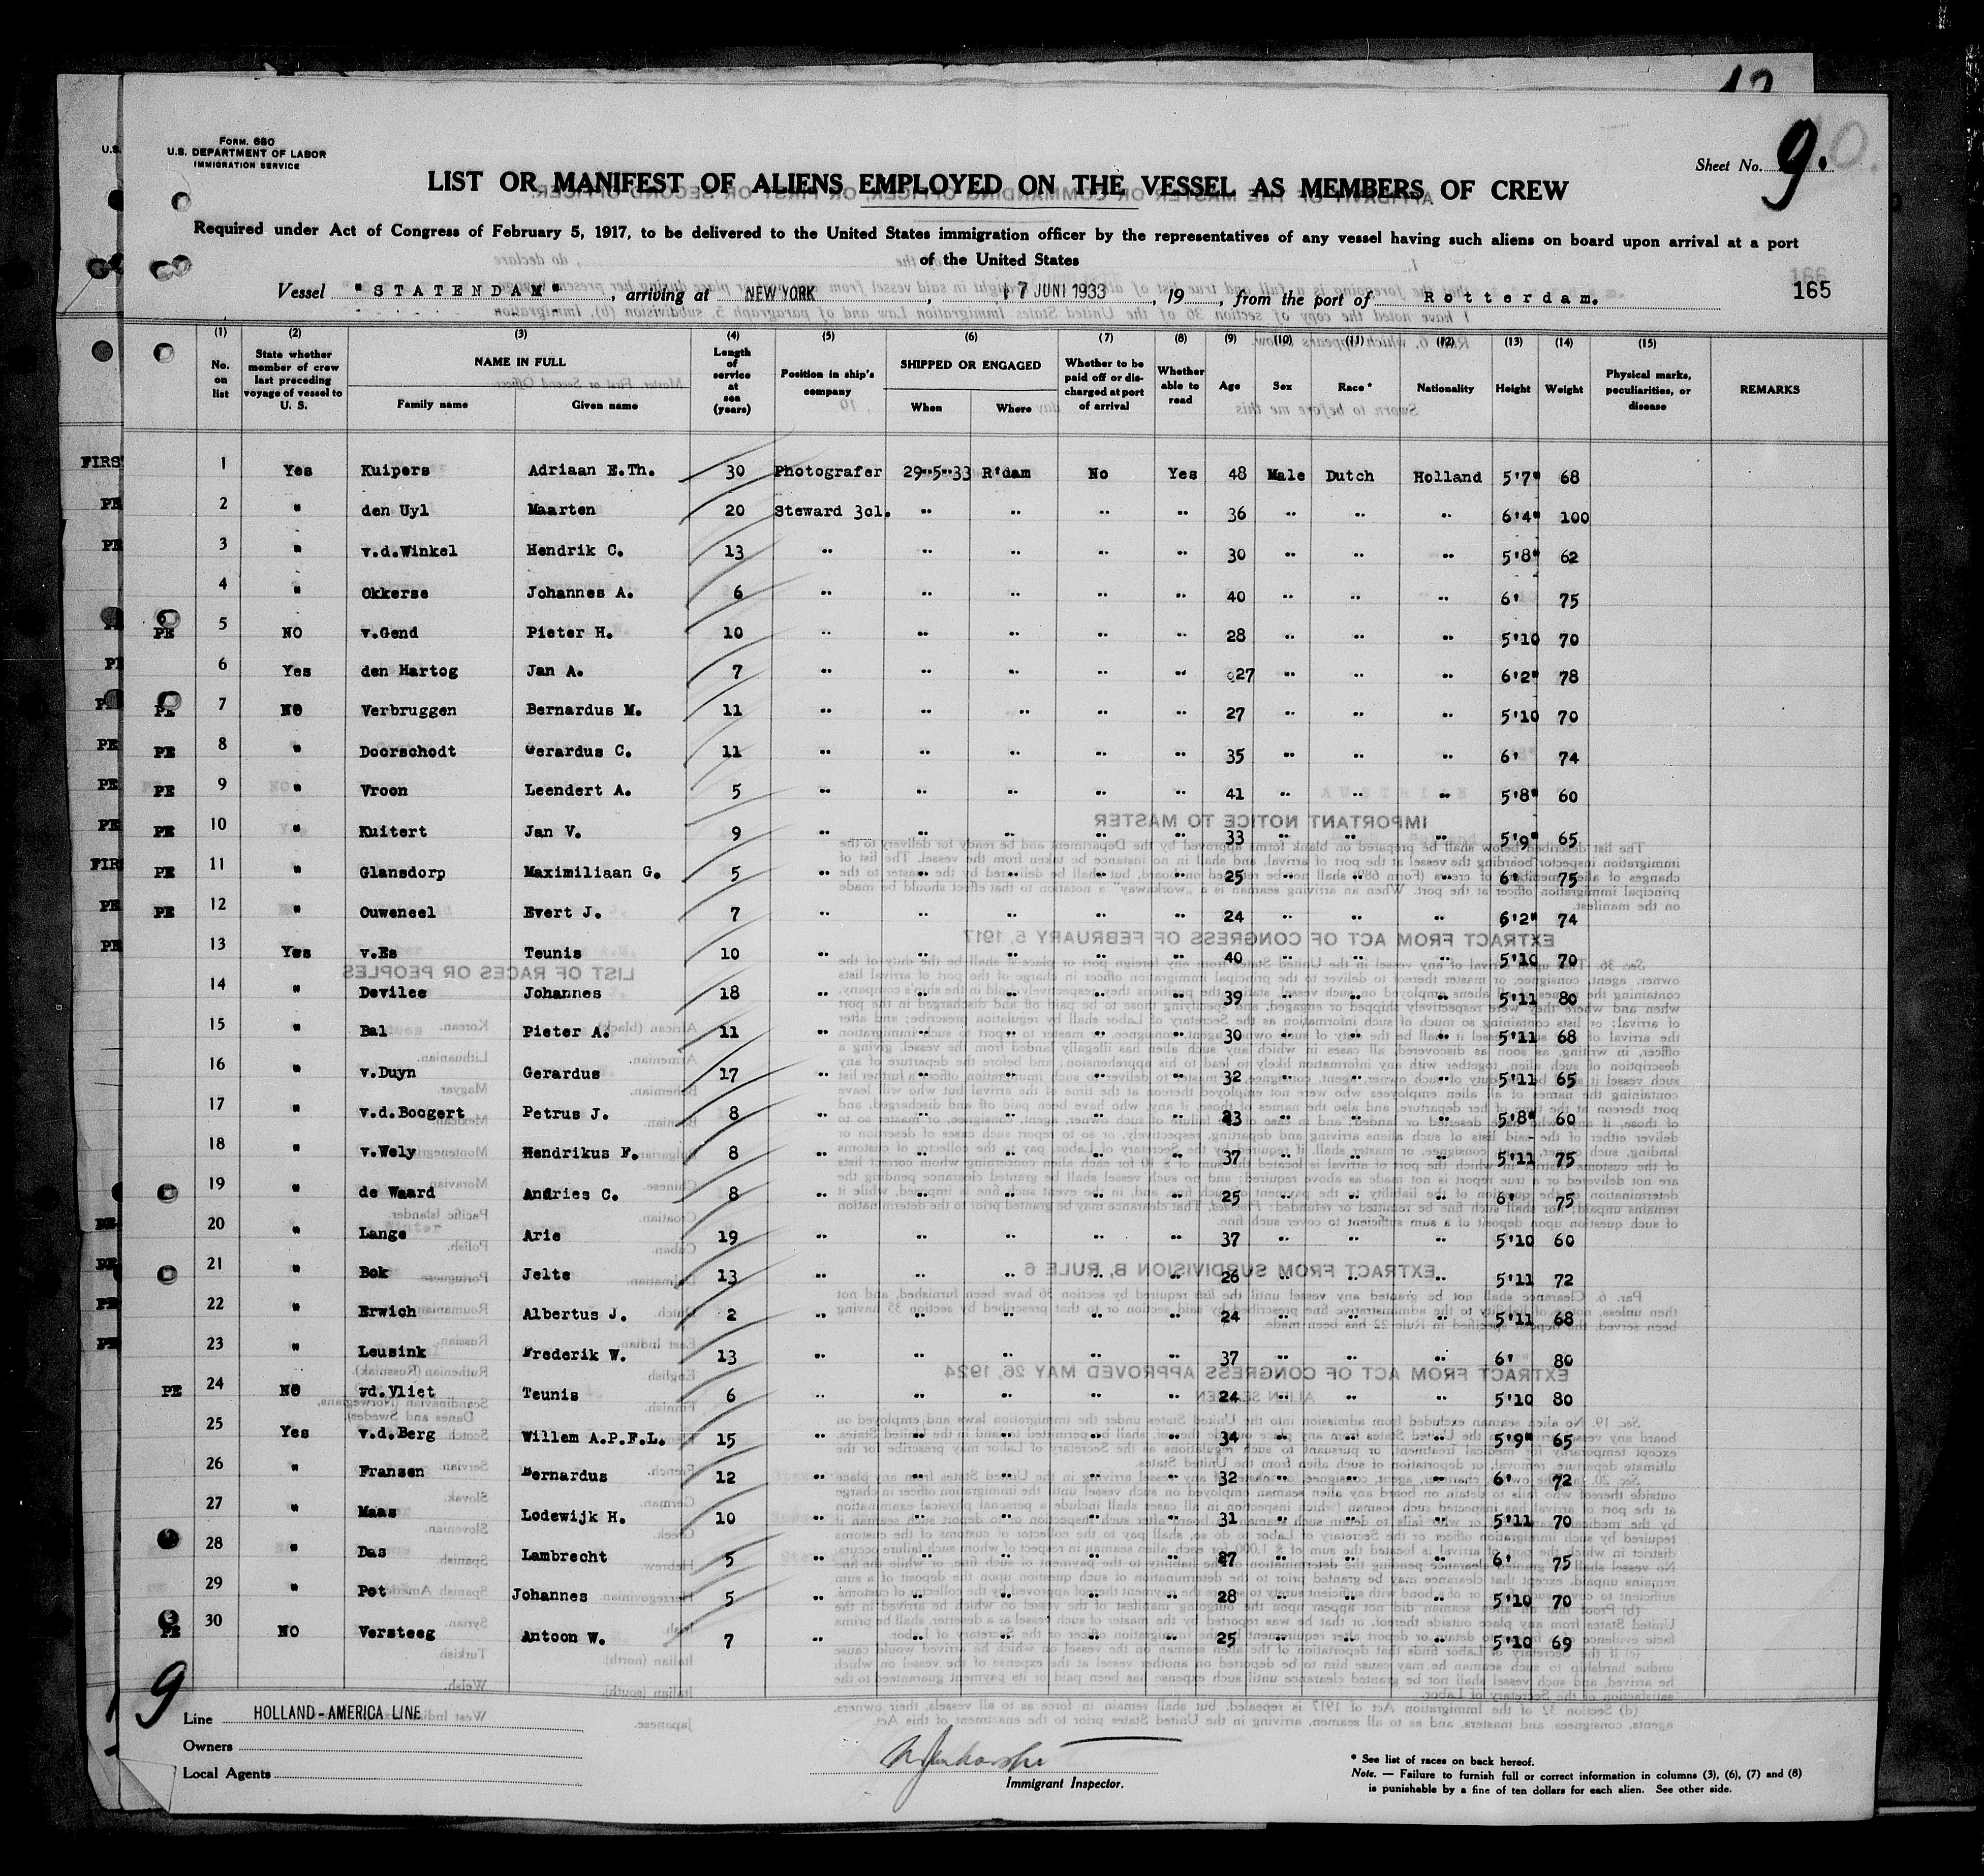 Form. 680
U.S. DEPARTMENT OF LABOR
IMMIGRATION SERVICE
Sheet No. 9.
LIST OR MANIFEST OF ALIENS EMPLOYED ON THE VESSEL AS MEMBERS OF CREW
Required under Act of Congress of February 5, 1917, to be delivered to the United States immigration officer by the representatives of any vessel having such aliens on board upon arrival at a port
of the United States
165
Vessel "STATENDAM", arriving at NEW YORK, 17 JUNI 1933, 19, from the port of Rotterdam.
(1) (2) (3) (4) (5) (6) (7) (8) (9) (10) (11) (12) (13) (14) (15)
No. on list State whether member of crew last preceding voyage of vessel to U. S. NAME IN FULL Family name Given name Length of service at sea (years) Position in ship's company SHIPPED OR ENGAGED When Where Whether to be paid off or discharged at port of arrival Whether able to read Age Sex Race* Nationality Height Weight Physical marks, peculiarities, or disease REMARKS
1 Yes Kuipers Adriaan E.Th. 30 Photografer 29-5-33 R'dam No Yes 48 Male Dutch Holland 5'7" 68
2 " den Uyl Maarten 20 Steward 3cl. " " " " 36 " " " 6'4" 100
3 " v.d.Winkel Hendrik C. 13 " " " " " 30 " " " 5'8" 62
4 " Okkerse Johannes A. 6 " " " " " 40 " " " 6' 75
PE 5 NO v.Gend Pieter H. 10 " " " " " 28 " " " 5'10 70
6 Yes den Hartog Jan A. 7 " " " " " 27 " " " 6'2" 78
PE 7 NO Verbruggen Bernardus M. 11 " " " " " 27 " " " 5'10 70
PE 8 " Doorschodt Gerardus C. 11 " " " " " 35 " " " 6' 74
PE 9 " Vroon Leendert A. 5 " " " " " 41 " " " 5'8" 60
PE 10 " Kuitert Jan V. 9 " " " " " 33 " " " 5'9" 65
PE 11 " Glansdorp Maximiliaan G. 5 " " " " " 25 " " " 6' 75
PE 12 " Ouweneel Evert J. 7 " " " " " 24 " " " 6'2" 74
13 Yes v.Es Teunis 10 " " " " " 40 " " " 5'10 70
14 " Devilee Johannes 18 " " " " " 39 " " " 5'11 80
15 " Bal Pieter A. 11 " " " " " 30 " " " 5'11 68
16 " v.Duyn Gerardus 17 " " " " " 32 " " " 5'11 65
17 " v.d.Boogert Petrus J. 8 " " " " " 23 " " " 5'8" 60
18 " v.Wely Hendrikus F. 8 " " " " " 37 " " " 5'11 75
19 " de Waard Andries C. 8 " " " " " 25 " " " 6' 75
20 " Lange Arie 19 " " " " " 37 " " " 5'10 60
21 " Bok Jelte 13 " " " " " 26 " " " 5'11 72
22 " Erwich Albertus J. 2 " " " " " 24 " " " 5'11 68
23 " Leusink Frederik W. 13 " " " " " 37 " " " 6' 80
PE 24 NO vd.Vliet Teunis 6 " " " " " 24 " " " 5'10 80
25 Yes v.d.Berg Willem A.P.F.L. 15 " " " " " 34 " " " 5'9" 65
26 " Fransen Bernardus 12 " " " " " 32 " " " 6' 72
27 " Maas Lodewijk H. 10 " " " " " 31 " " " 5'11 70
28 " Das Lambrecht 5 " " " " " 27 " " " 6' 75
29 " Pot Johannes 5 " " " " " 28 " " " 5'10 70
PE 30 NO Versteeg Antoon W. 7 " " " " " 25 " " " 5'10 69
9
Line HOLLAND-AMERICA LINE
Owners
Local Agents
Immigrant Inspector.
* See list of races on back hereof.
Note. — Failure to furnish full or correct information in columns (3), (6), (7) and (8)
is punishable by a fine of ten dollars for each alien. See other side.